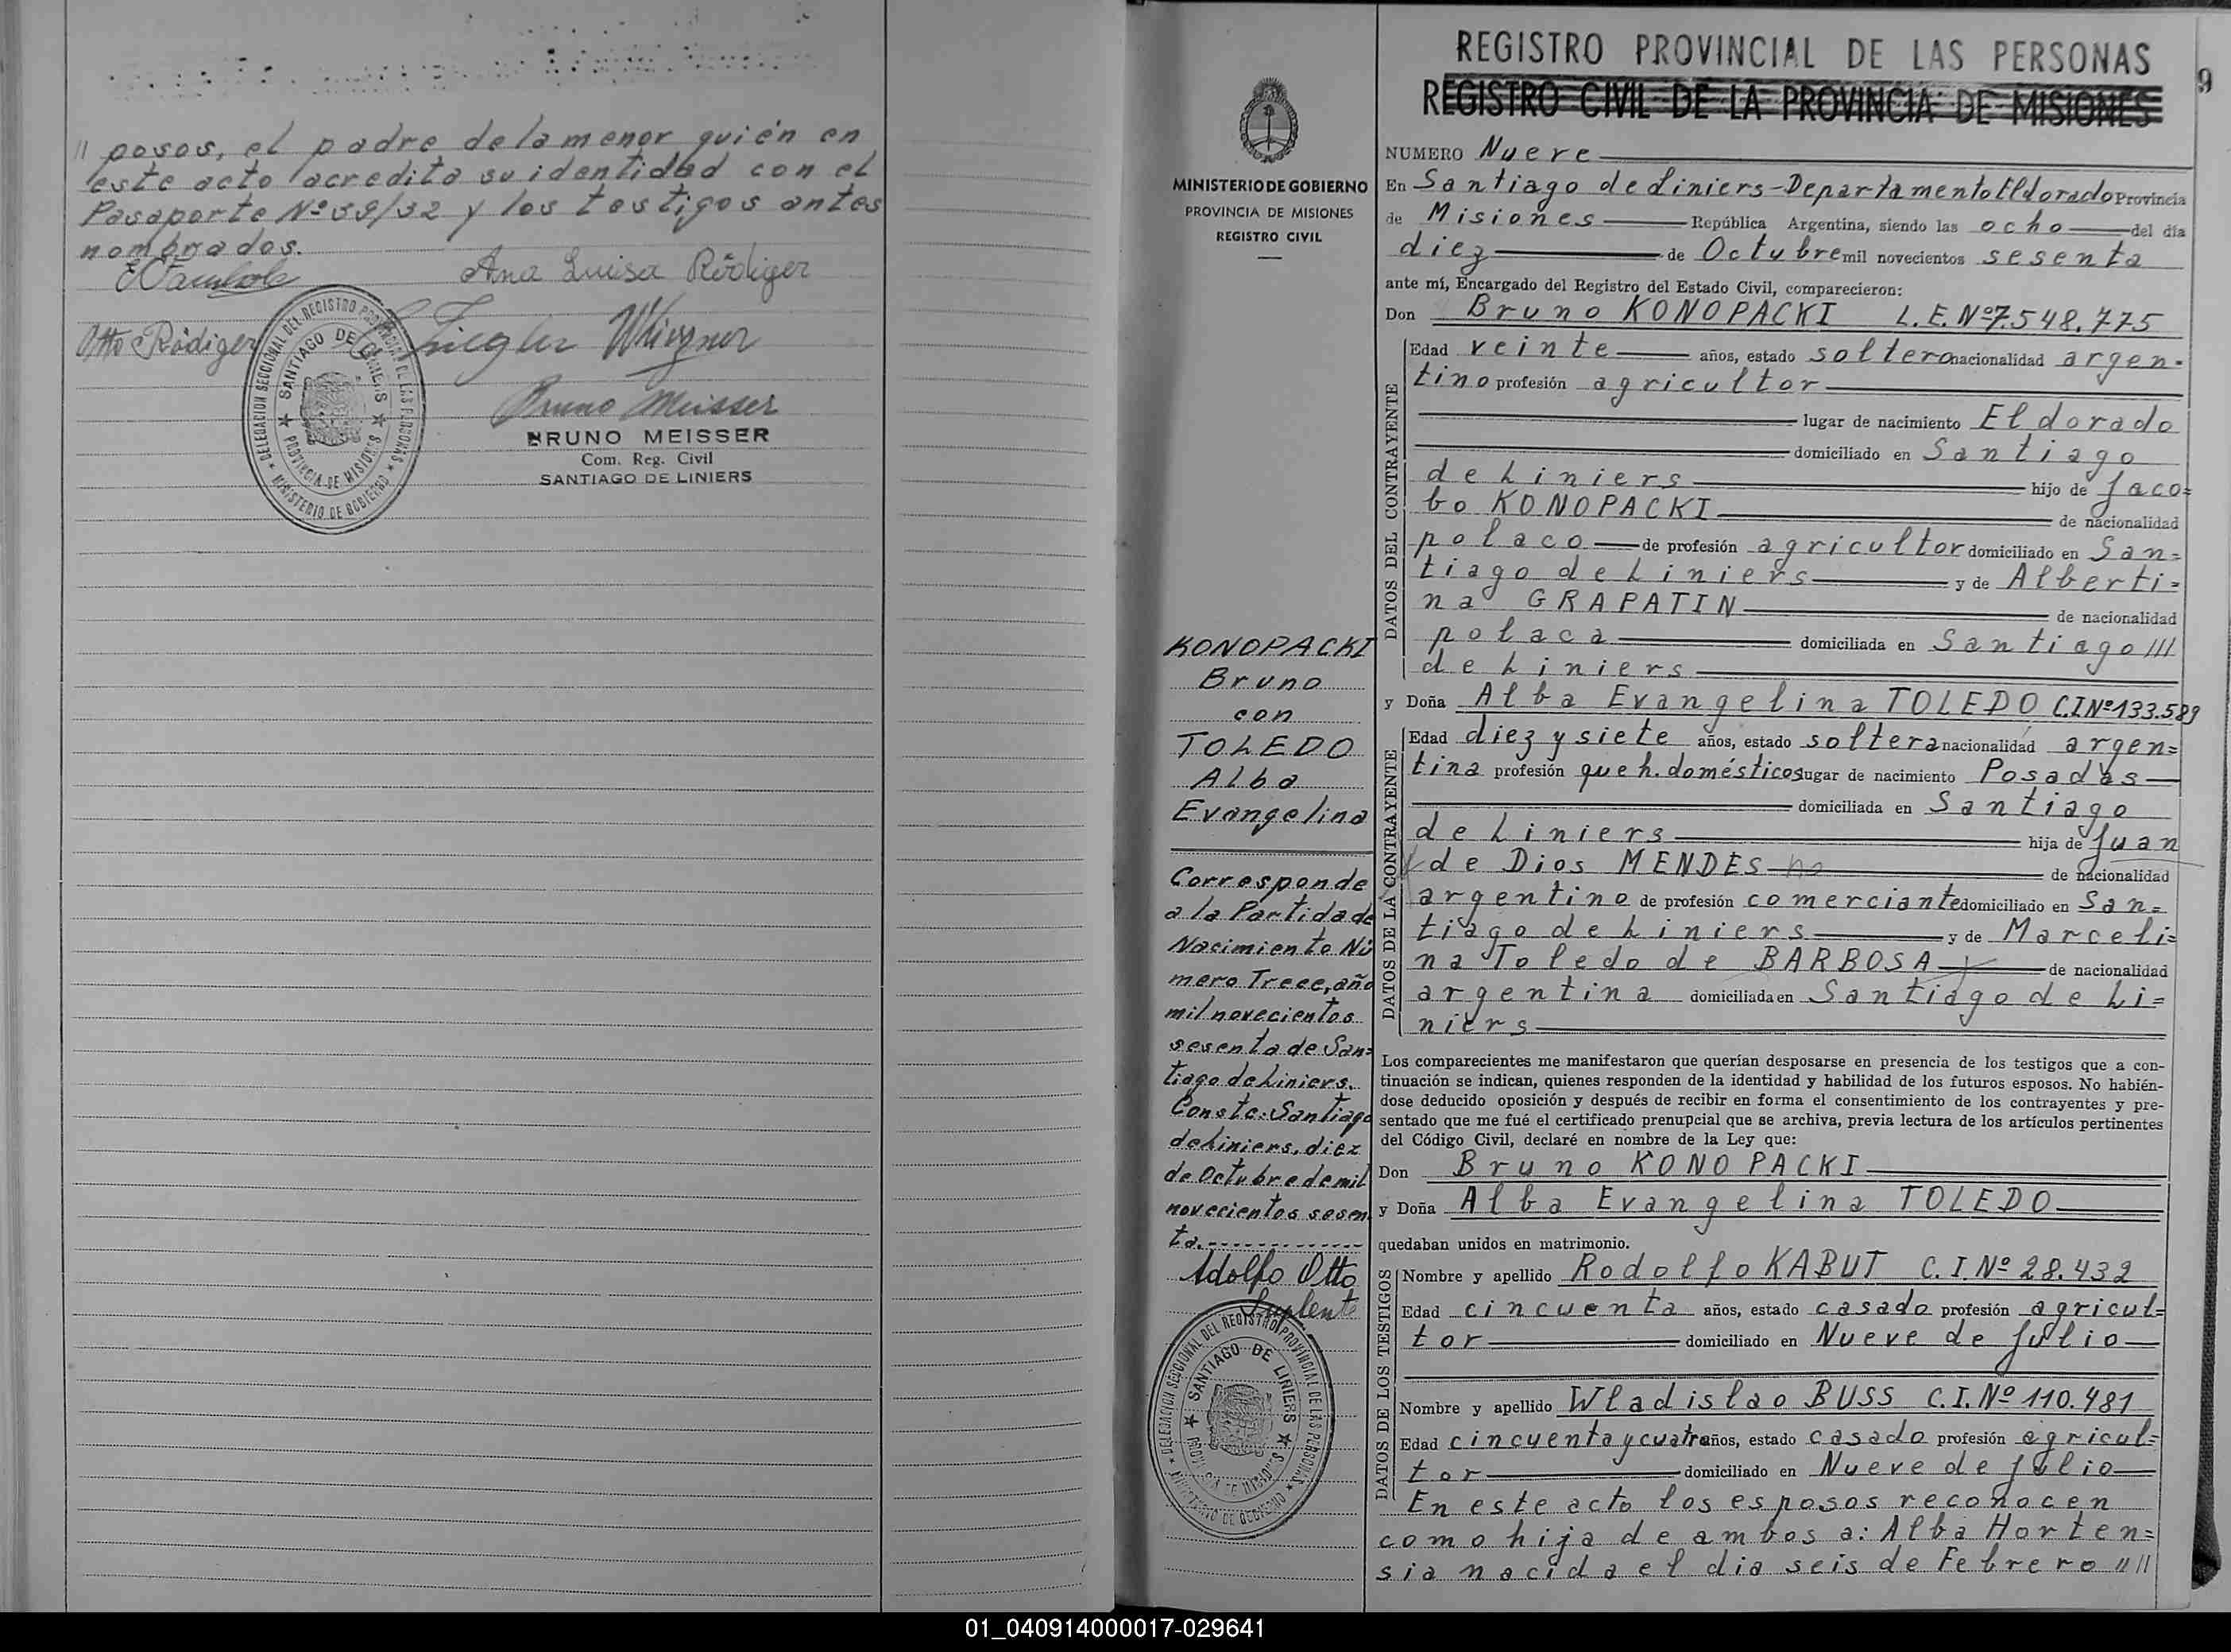 // posos, el padre de la menor quién en
este acto acredita su identidad con el
Pasaporte Nº 59/32 y los testigos antes
nombrados.
Ana Luisa Rödiger
Otto Rödiger
Ziegler
Bruno Meisser
BRUNO MEISSER
Com. Reg. Civil
SANTIAGO DE LINIERS
DELEGACION SECCIONAL DEL REGISTRO PROVINCIAL DE LAS PERSONAS
MINISTERIO DE GOBIERNO
SANTIAGO DE LINIERS
PROVINCIA DE MISIONES
9
MINISTERIO DE GOBIERNO
PROVINCIA DE MISIONES
REGISTRO CIVIL
KONOPACKI
Bruno
con
TOLEDO
Alba
Evangelina
Corresponde
a la Partida de
Nacimiento Nú
mero Trece, año
mil novecientos
sesenta de San=
tiago de Liniers.
Conste: Santiago
de Liniers, diez
de Octubre de mil
novecientos sesen
ta.
Adolfo Otto
Suplente
DELEGACION SECCIONAL DEL REGISTRO PROVINCIAL DE LAS PERSONAS
MINISTERIO DE GOBIERNO
SANTIAGO DE LINIERS
PROVINCIA DE MISIONES
REGISTRO PROVINCIAL DE LAS PERSONAS
REGISTRO CIVIL DE LA PROVINCIA DE MISIONES
NUMERO Nueve
En Santiago de Liniers - Departamento Eldorado Provincia
de Misiones República Argentina, siendo las ocho del día
diez de Octubre mil novecientos sesenta
ante mí, Encargado del Registro del Estado Civil, comparecieron:
Don Bruno KONOPACKI L.E. Nº 7.548.775
DATOS DEL CONTRAYENTE
Edad veinte años, estado soltero nacionalidad argen-
tino profesión agricultor
lugar de nacimiento Eldorado
domiciliado en Santiago
de Liniers hijo de Jaco=
bo KONOPACKI de nacionalidad
polaco de profesión agricultor domiciliado en San=
tiago de Liniers y de Alberti=
na GRAPATIN de nacionalidad
polaca domiciliada en Santiago ///
de Liniers
y Doña Alba Evangelina TOLEDO C.I Nº 133.589
DATOS DE LA CONTRAYENTE
Edad diez y siete años, estado soltera nacionalidad argen=
tina profesión queh. domésticos lugar de nacimiento Posadas
domiciliada en Santiago
de Liniers hija de Juan
de Dios MENDES no de nacionalidad
argentino de profesión comerciante domiciliado en San=
tiago de Liniers y de Marceli=
na Toledo de BARBOSA de nacionalidad
argentina domiciliada en Santiago de Li=
niers
Los comparecientes me manifestaron que querían desposarse en presencia de los testigos que a con-
tinuación se indican, quienes responden de la identidad y habilidad de los futuros esposos. No habién-
dose deducido oposición y después de recibir en forma el consentimiento de los contrayentes y pre-
sentado que me fué el certificado prenupcial que se archiva, previa lectura de los artículos pertinentes
del Código Civil, declaré en nombre de la Ley que:
Don Bruno KONOPACKI
y Doña Alba Evangelina TOLEDO
quedaban unidos en matrimonio.
DATOS DE LOS TESTIGOS
Nombre y apellido Rodolfo KABUT C.I. Nº 28.432
Edad cincuenta años, estado casado profesión agricul=
tor domiciliado en Nueve de Julio
Nombre y apellido Wladislao BUSS C.I. Nº 110.481
Edad cincuenta y cuatro años, estado casado profesión agricul=
tor domiciliado en Nueve de Julio
En este acto los esposos reconocen
como hija de ambos a: Alba Horten=
sia nacida el dia seis de Febrero ////
01_040914000017-029641